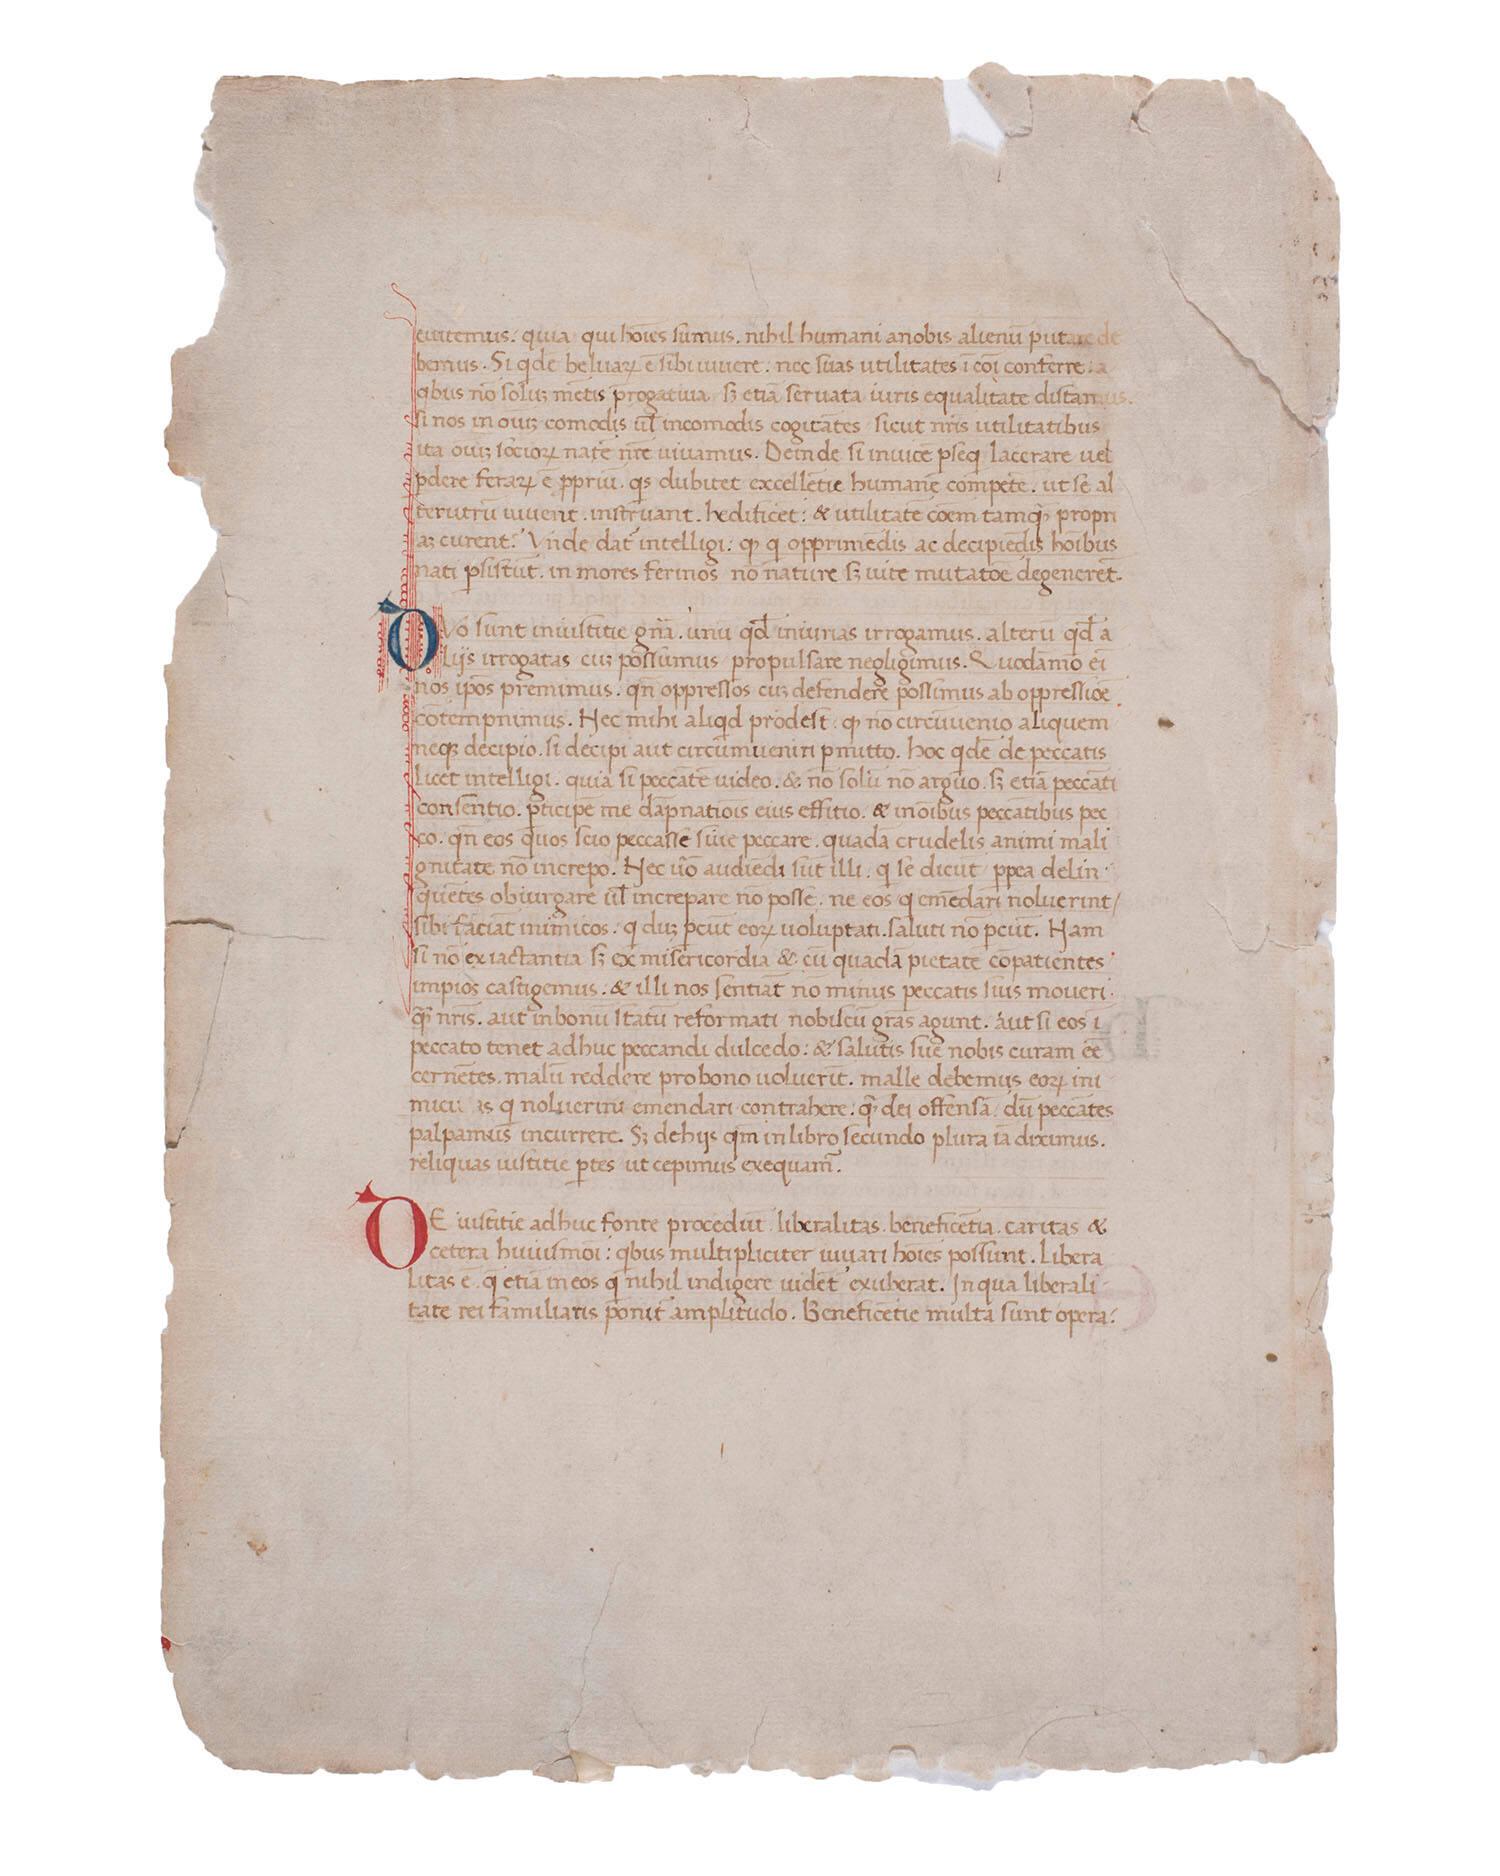 euitemus. quia qui hoīes sumus. nihil humani anobis alienū putare de
bemus. Si qdē beluaꝝ ē sibi uiuere. nec suas utilitates ī cōi conferre: a
qbus nō soluꝫ mētis p̱rogatiua sꝫ etiā seruata iuris equalitate distamus.
si nos in oīuꝫ comodis ul̄ incomodis cogitātes sicut nr̄is utilitatibus
ita oīuꝫ socioꝝ natē nr̄e uiuamus. Deinde si inuicē p̱seq lacerare uel
p̱dere feraꝝ ē p̱priū. qs dubitet excellētie humanē compete. ut se al
terutrū iuuent. instruant. hedificēt: & utilitatē cōem tamqꝫ propri
aꝫ curent? Vnde dat̄ intelligi: qꝫ q opprimēdis ac decipiēdis hoībus
nati p̱sistūt. in mores ferinos nō nature sꝫ uite mutatōe degeneret.
DVo sunt iniustitie gn̄a. unū qd̄ iniurias irrogamus. alterū qd̄ a
lijs irrogatas cuꝫ possumus propulsare negligimus. Quodāmō ei
nos ipōs premimus. qn̄ oppressos cuꝫ defendere possimus ab oppressiōe
cōtempnimus. Nec mihi aliqd prodest. qꝫ nō circūuenio aliquem
neqꝫ decipio. si decipi aut circūmueniri p̱mitto. hoc qdē de peccatis
licet intelligi. quia si peccātē uideo. & nō solū nō arguo. sꝫ etiā peccāti
consentio. p̱ticipē me dāpnatiōis eius effitio. & in oībus peccātibus pec
co. qn̄ eos quos scio peccasse siue peccare. quadā crudelis animi mali
gnitate nō increpo. Nec uō audiēdi sūt illi. q se dicūt p̱p̱ea delin
quētes obiurgare ul̄ increpare nō posse. ne eos q emēdari noluerint/
sibi faciāt inimicos. q duꝫ p̱cūt eoꝝ uoluptati. saluti nō p̱cūt. Nam
si nō ex iactantia sꝫ ex misericordia & cū quadā pietate cōpatientes
impios castigemus. & illi nos sentiāt nō minus peccatis suis moueri
qꝫ nr̄is. aut in bonū statū reformati nobiscū grās agunt. aut si eos ī
peccato tenet adhuc peccandi dulcedo: & salutis suē nobis curam eē
cernētes. malū reddere pro bono uoluerīt. malle debemus eoꝝ ini
micitias q noluerint emendari contrahere. qꝫ dei offensā. dū peccātes
palpamus incurrere. Sꝫ de hijs qm̄ in libro secundo plura iā diximus.
reliquas iustitie p̱tes ut cepimus exequam̄.
DE iustitie adhuc fonte procedūt liberalitas. beneficētia. caritas &
cetera huiusmōi: qbus multipliciter iuuari hoīes possunt. Libera
litas ē. q̄ etiā in eos q nihil indigere uidēt̄ exuberat. In qua liberali
tate rei familiaris ponit̄ amplitudo. Beneficētie multa sunt opera: